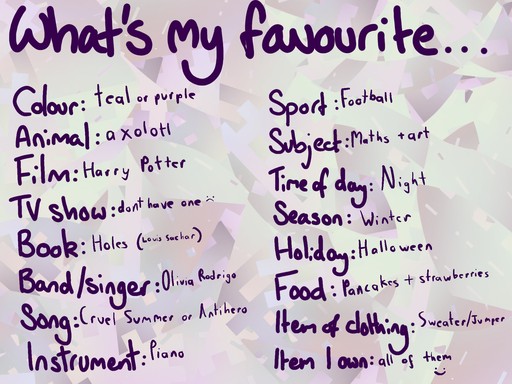 What's my favourite...
Colour: teal or purple
Animal: axolotl
Film: Harry Potter
TV show: dont have one :(
Book: Holes (Louis Sachar)
Band/singer: Olivia Rodrigo
Song: Cruel Summer or Antihero
Instrument: Piano
Sport: Football
Subject: Maths + art
Time of day: Night
Season: Winter
Holiday: Halloween
Food: Pancakes + strawberries
Item of clothing: Sweater/Jumper
Item I own: all of them :)